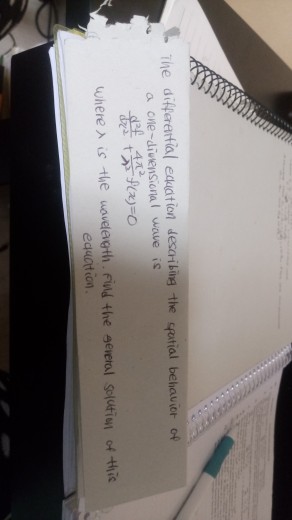 The differential equation describing the spatial behavior of
a one-dimensional wave is
d²f/dx² + 4π²/λ² f(x)=0
where λ is the wavelength. Find the general solution of this
equation.